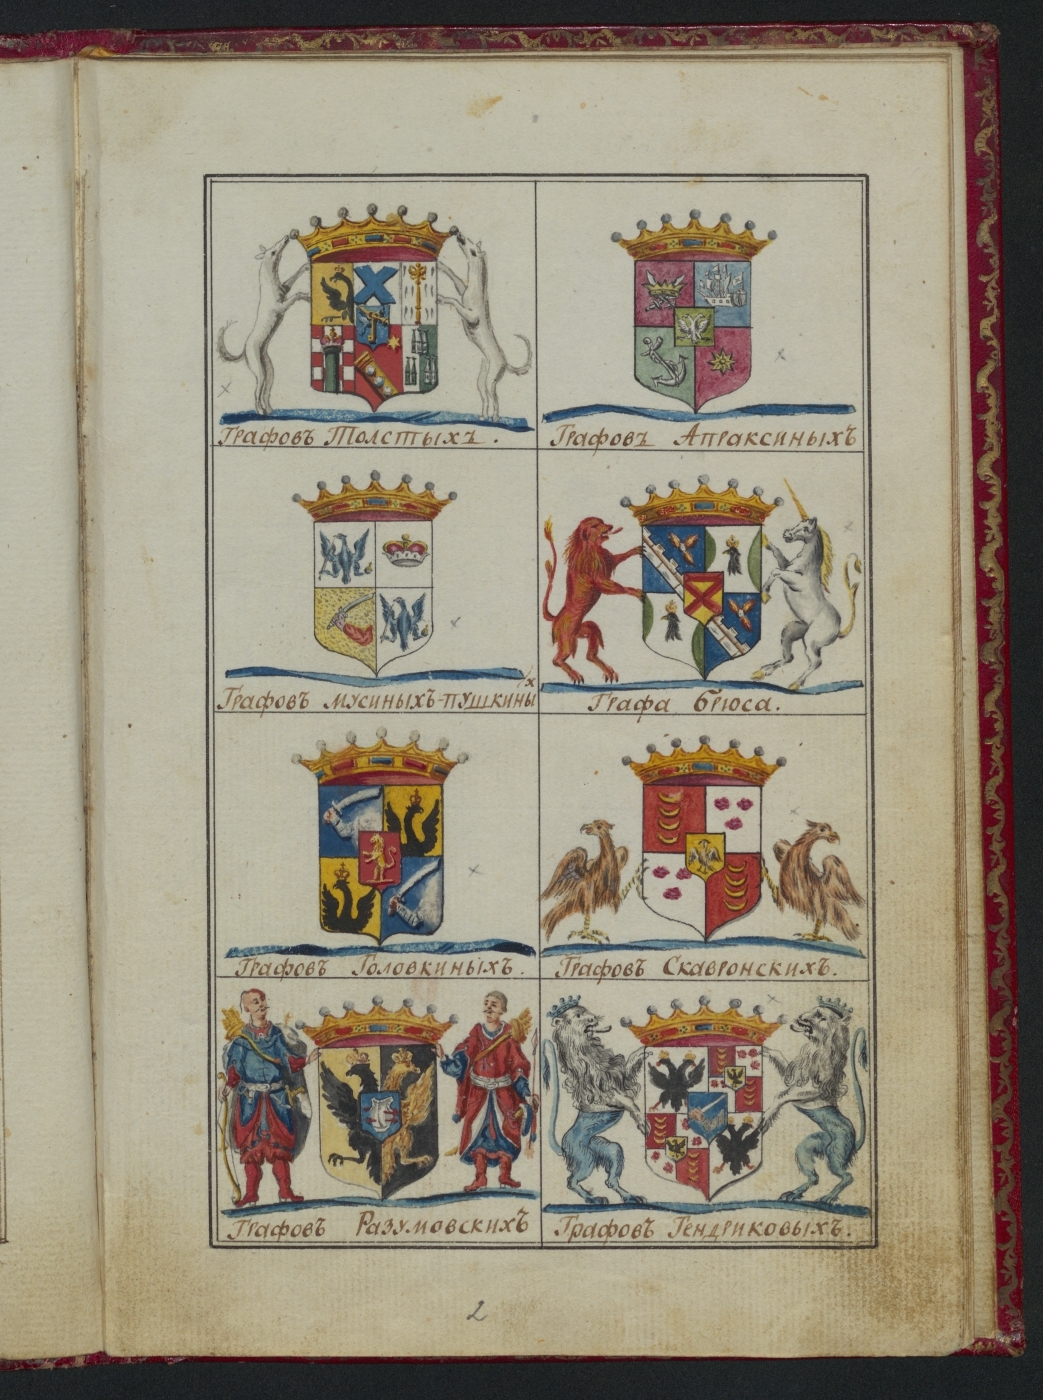 Графовъ Толстыхъ.
Графовъ Апраксиныхъ
Графовъ Мусиныхъ-Пушкины
Графа Брюса.
Графовъ Головкиныхъ.
Графовъ Скавронскихъ.
Графовъ Разумовскихъ
Графовъ Гендриковыхъ.
2